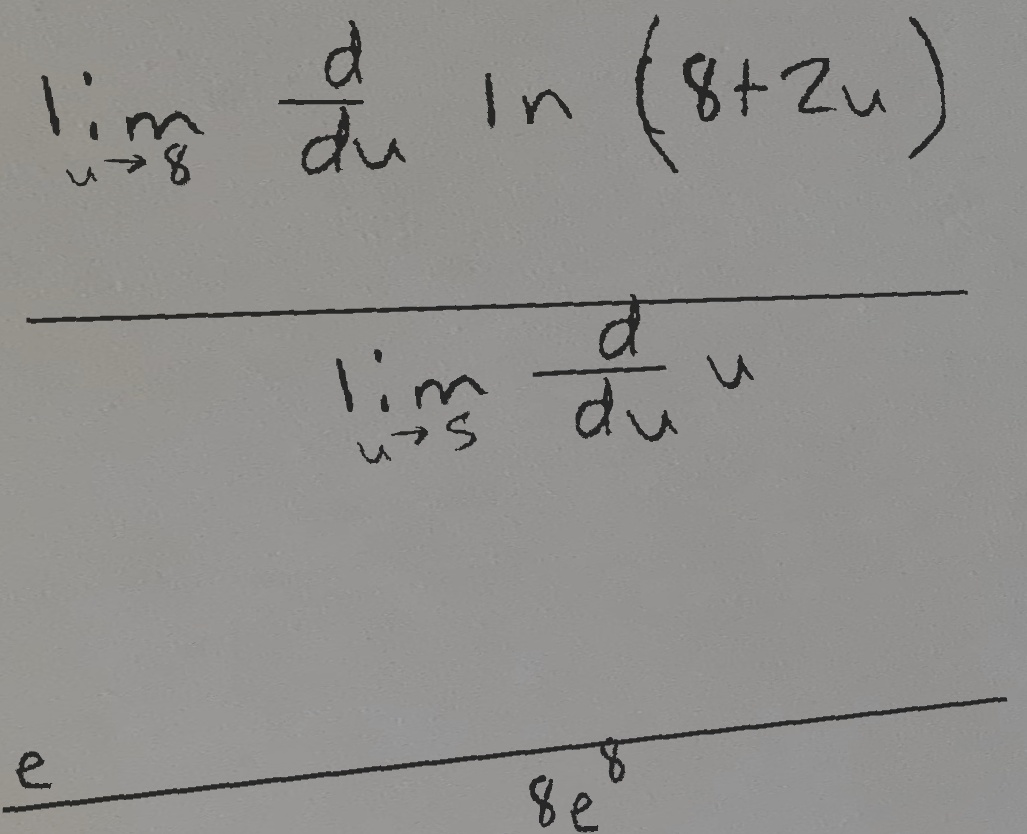 lim u→8 d/du ln (8+2u)
lim u→5 d/du u
e
8e^8